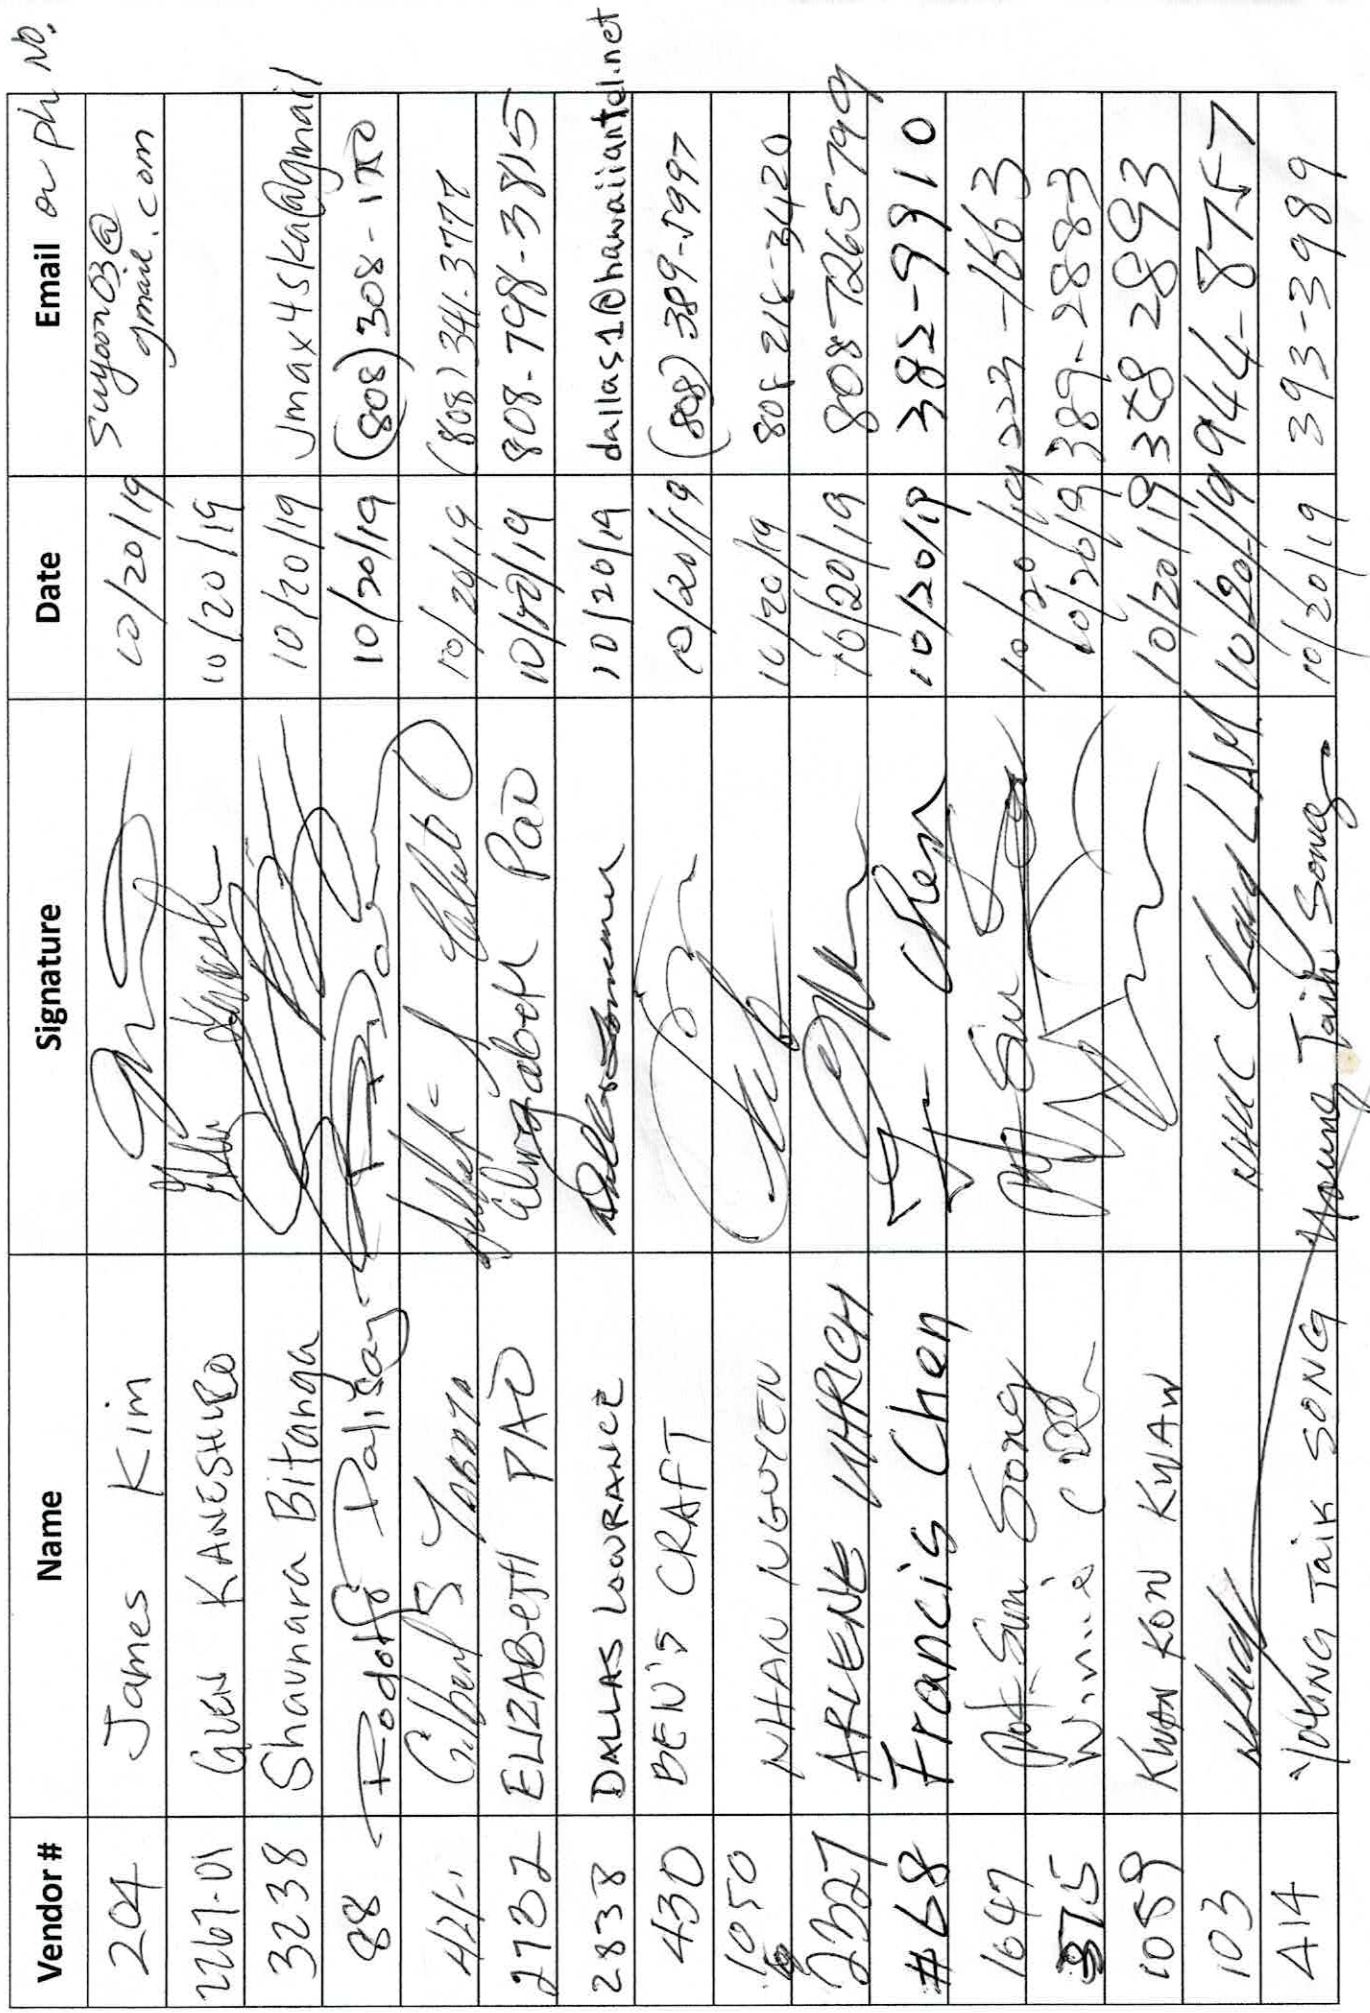 Vendor # Name Signature Date Email or ph No.
204 James Kim 10/20/19 Suyoon03@
gmail.com
2267-01 GLEN KANESHIRO 10/20/19
3238 Shaunara Bitanga 10/20/19 Jmax4ska@gmail
88 Rodolfo Palisay 10/20/19 (808) 308-
421-1 Gilbert S 10/20/19 (808) 341-3777
2732 ELIZABETH PAO Elizabeth Pao 10/20/19 808-798-3815
2838 DALLAS LOWRANCE 10/20/19 dallas1@hawaiiantel.net
430 BEN'S CRAFT 10/20/19 (808) 389-5997
1050 NHAN NGUYEN 10/20/19 808-218-3420
2327 ARLENE UHRICH 10/20/19 8087265799
#68 Francis Chen Chen 10/20/19 382-9910
1647 Pok-Sun Song 10/20/19 223-1663
3715 Winnie 10/20/19 389-2883
1059 KHAN KON KYAW 10/20/19 378 2893
103 NHUC LAM 10/20/19 944-8757
A14 YOUNG TAIK SONG Young Taik Song 10/20/19 393-3989